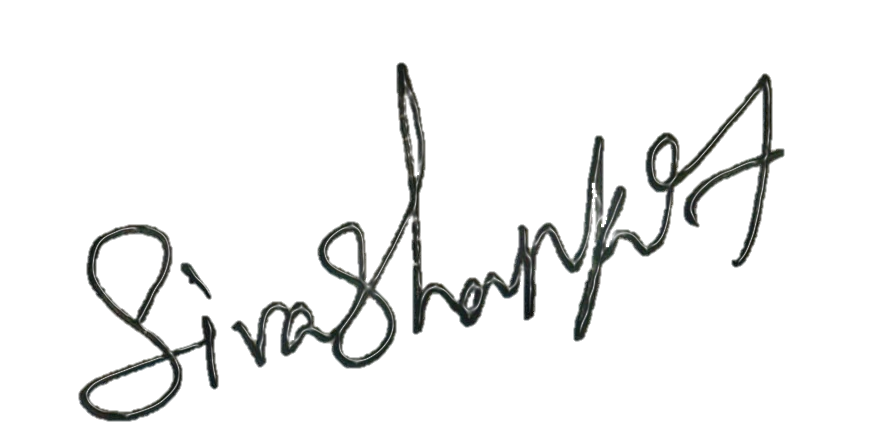 Sivashankar A